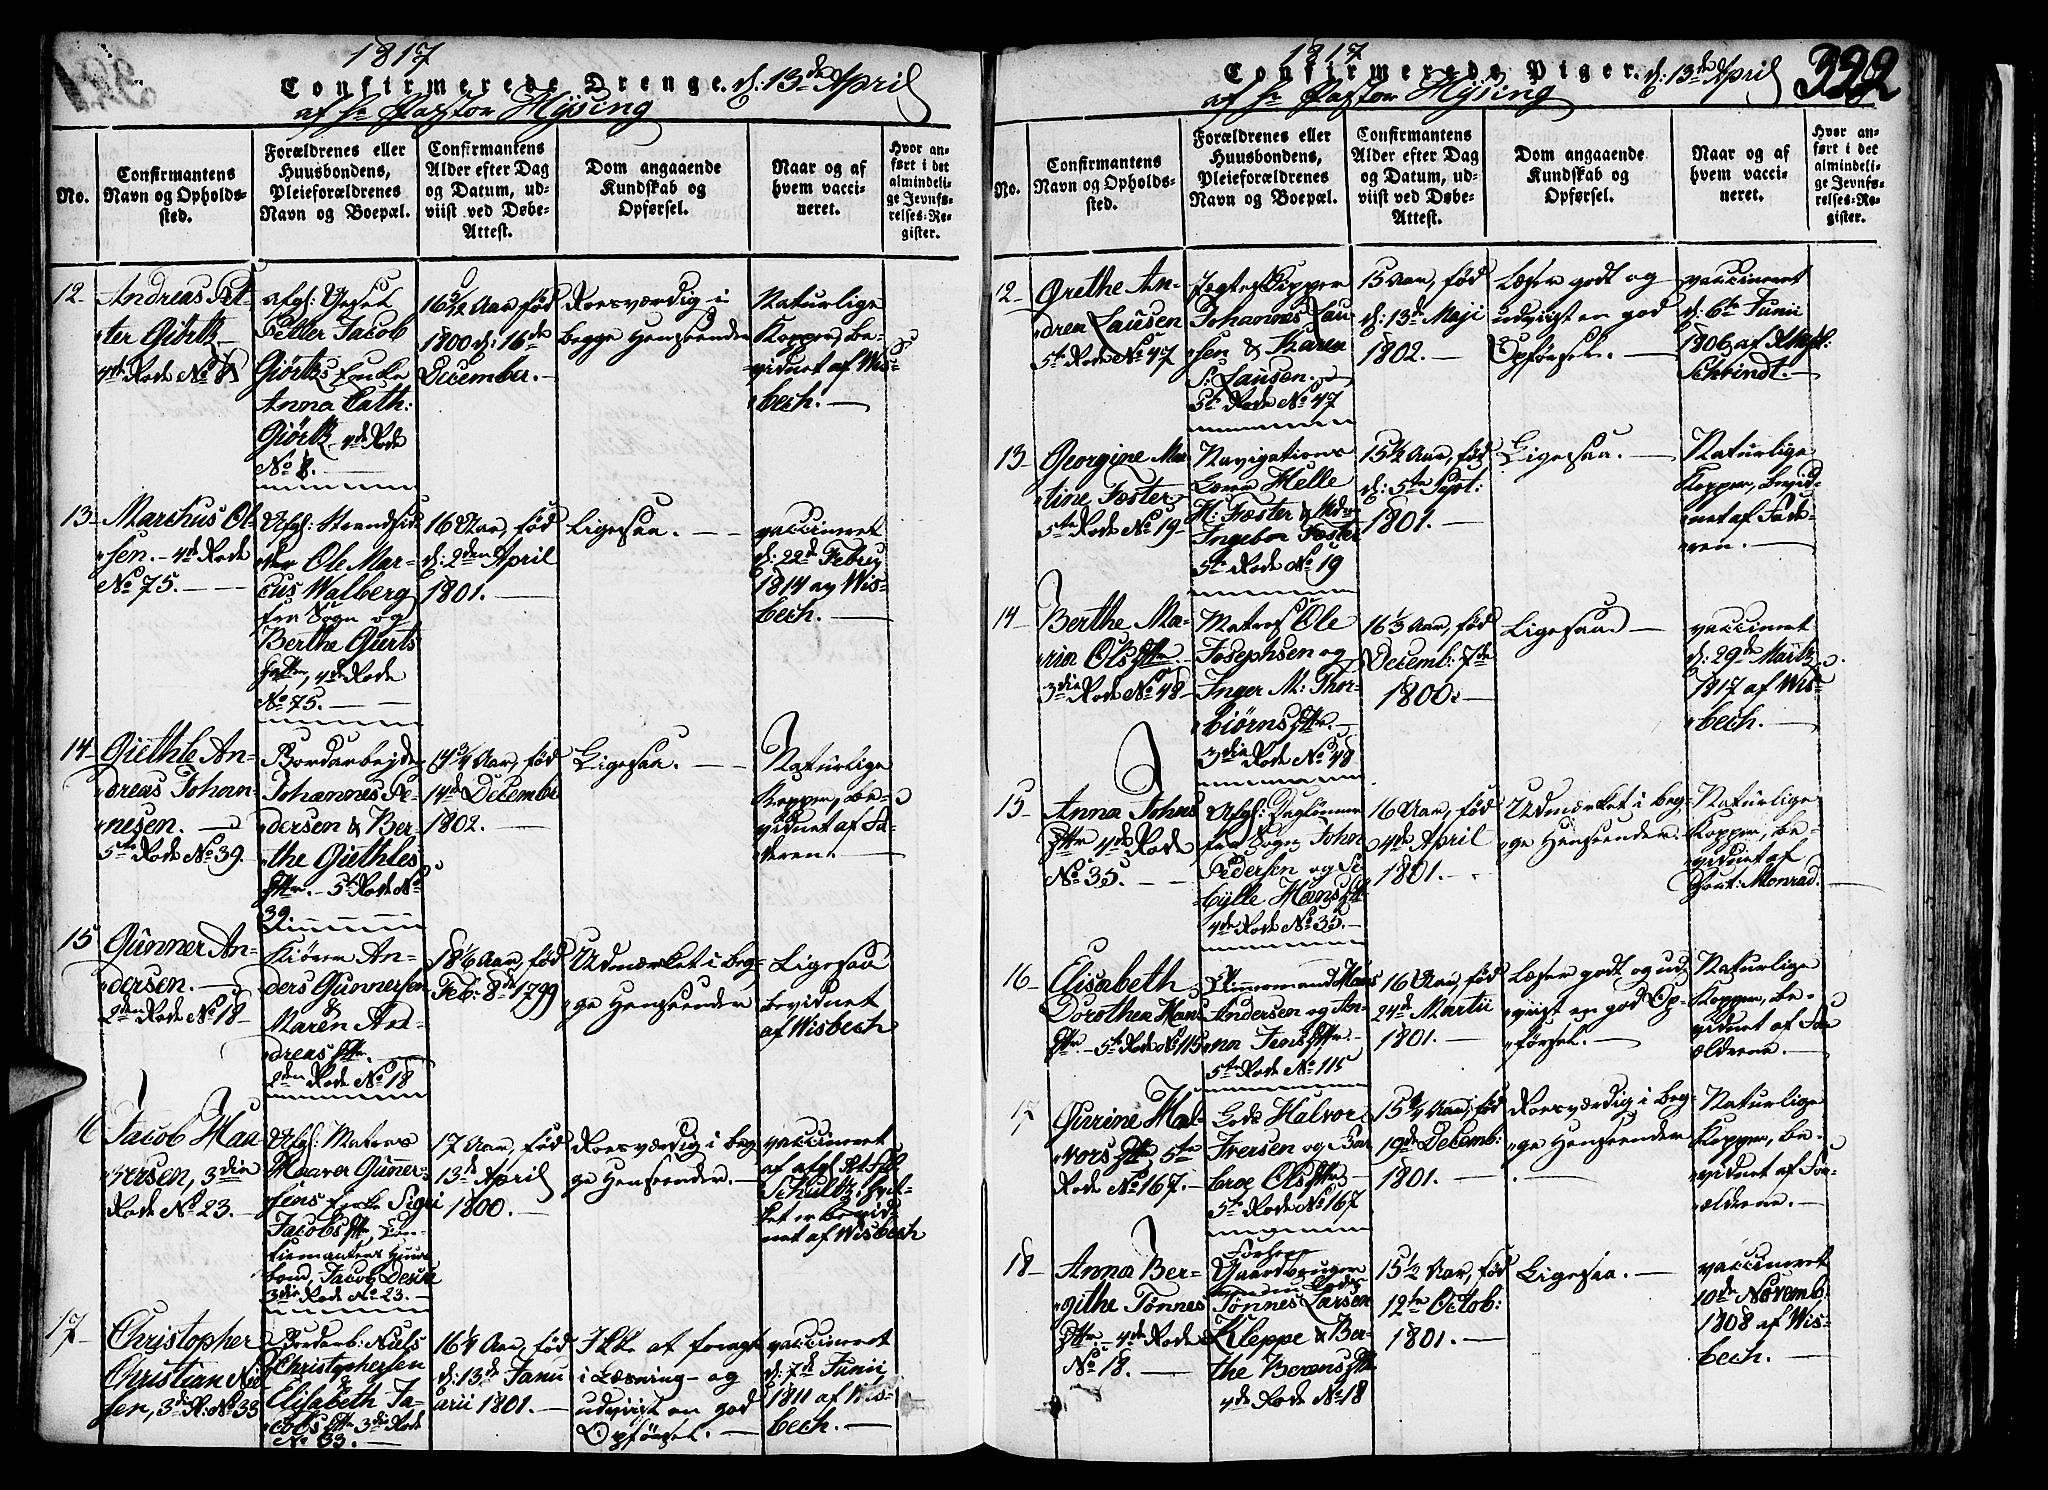 1817
Confirmerede Drenge. d: 13de April
af Hr Pastor Hysing
No.
Confirmantens
Navn og Opholds-
sted.
Forældrenes eller
Huusbondens,
Pleieforældrenes
Navn og Boepæl.
Confirmantens
Alder efter Dag
og Datum, ud-
viist ved Døbe-
Attest.
Dom angaaende
Kundskab og
Opførsel.
Naar og af
hvem vacci-
neret.
Hvor an-
ført i det
almindeli-
ge Jevnfø-
relses-Re-
gister.
12
Andreas Pet-
ter Giörtz
4de Rode No 8
Petter Jacob
Giörtzs Enke
Anna Cath:
Giörtz 4de Rode
No 8.
16 3/4 Aar, fød
1800 d: 16de
December.
Roesværdig i
begge Henseender
Naturlige
Kopper, be-
vidnet af Wis-
bech.
13
Marchus Ol-
sen. 4de Rode
No 75.
Afgl: Strandsid
der Ole Mar-
cus Walberg
fra Sogn og
Berthe Giurts
Dttr, 4de Rode
No 75.
16 Aar, fød
d: 2den April
1801.
Ligesaa.
vaccineret
d: 22de Febry
1814 av Wis-
bech.
14
Giethle An-
dreas Johan-
nesen.
5te Rode No 39.
Bordarbejder
Johannes Pe-
dersen & Ber-
the Giethles
Dttr. 5te Rode No
39
14 3/4 Aar, fød
14de December
1802.
Ligesaa.
Naturlige
Kopper, be-
vidnet af Fa-
deren.
15
Gunner An-
dersen.
2den Rode No 18
Kiörer An-
ders Gunnersen
&
Maren An-
dreas Dttr.
2den Rode No 18
18 1/6 Aar, fød
Feb: 8de 1799
Udmærket i beg-
ge Henseender
Ligesaa
bevidnet
af Wisbech
16
Jacob Haa-
versen, 3die
Rode No 23.
Afgl: Matros
Haaver Gunner-
sens Enke Sigri
Jacobs Dttr, Con-
firmantens Huus-
bond, Jacob
3die Rode No 23.
17 Aar, fød
13de April
1800.
Roesværdig i beg
ge Henseender.
vaccineret
af afgl
Schultz, hvil-
ket er bevid-
net af Wisbech
17
Christopher
Christian Niel
sen, 3die R: No 33
Bordarb: Niels
Christophersen
&
Elisabeth Ja-
cobs Dttr 3die Rode
No 33.
16 1/4 Aar, fød
d: 13de Janu
arii 1801.
Ikke at foragte
i Læsning og
udviist en god
Opførsel.
vaccineret
d: 7de Junii
1811 af Wis-
bech.
1817
Confirmerede Piger. d: 13de April
322
af Hr Pastor Hysing
No.
Confirmantens
Navn og Opholds-
sted.
Forældrenes eller
Huusbondens,
Pleieforældrenes
Navn og Boepæl.
Confirmantens
Alder efter Dag
og Datum, ud-
viist ved Døbe-
Attest.
Dom angaaende
Kundskab og
Opførsel.
Naar og af
hvem vacci-
neret.
Hvor an-
ført i det
almindeli-
ge Jevnfø-
relses-Re-
gister.
12
Grethe An-
drea Lausen
5te Rode No 47
Jegteskipper
Johannes Lau-
sen & Karen
S: Lausen.
5te Rode No 47
15 Aar, fød
d: 13de Maji
1802.
Læser godt og
udviist en god
Opførsel.
vaccineret
d: 6te Junii
1806 af
Schrindt.
13
Georgine Mar
tine Foster
5te Rode No 19
Navigations
Lærer Helle
H: Foster & Mdm
Ingebor Foster
5te Rode No 19
15 1/2 Aar, fød
d: 5te Sept:
1801.
Ligesaa.
Naturlige
Kopper, bevid-
net af Fade-
ren.
14
Berthe Ma-
rin Ols Dttr
3die Rode No 48
Matros Ole
Josephsen og
Inger M: Thor-
biörns Dttr.
3die Rode No 48
16 1/3 Aar, fød
Decemb: 7de
1800.
Ligesaa
vaccineret
d: 29de Martz
1817 af Wis-
bech.
15
Anna Johns
Dttr 4de Rode
No 35.
Afgl: Daglönner
fra Sogn John
Pedersen og Si-
bylle Hans Dttr
4de Rode No 35.
16 Aar, fød
4de April
1801.
Udmærket i beg-
ge Henseender.
Naturlige
Kopper, be-
vidnet af
Monrad.
16
Elisabeth
Dorothea Hans
Dttr. 5te Rode No 115
Tömmermand Hans
Andersen og An-
na Jens Dttr.
5te Rode No 115
16 Aar, fød
24de Martii
1801.
Læser godt og ud
viist en god Op-
førsel.
Naturlige
Kopper, be-
vidnet af For
ældrene.
17
Gurine Hal-
vors Dttr, 5te
Rode No 167.
Lods Halvor
Iversen og Bar
broe Ols Dttr
5te Rode No 167
15 1/4 Aar, fød
19de Decemb:
1801.
Roesværdig i beg-
ge Henseender
Naturlige
Kopper, be-
vidnet af For
ældrene.
18
Anna Ber-
githe Tönnes
Dttr. 4de Rode
No 18.
Forhen
Gaardbruger
Lods
Tönnes Larsen
Kleppe & Ber-
the Berens Dttr
4de Rode No 18
15 1/2 Aar, fød
12te Octob:
1801.
Ligesaa.
vaccineret
10de Novemb:
1808 af Wis-
bech.